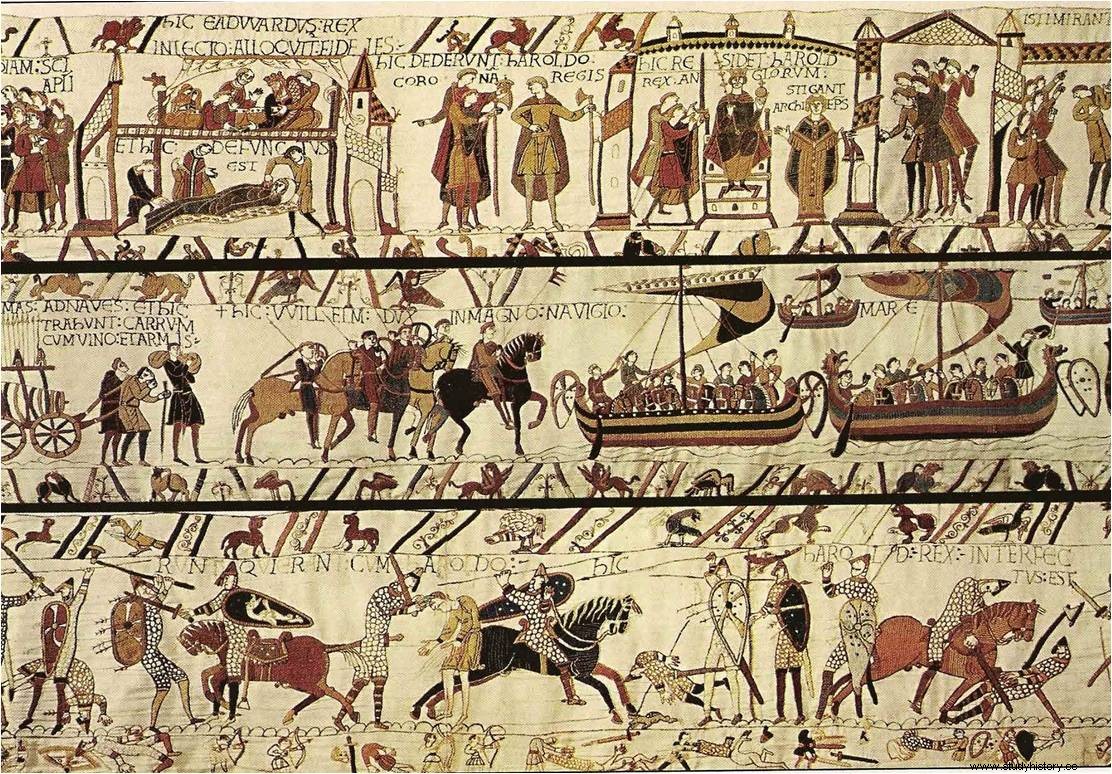 DIAM: SCI
APLI
hIC EADVVARDVS: REX
IN LECTO: ALLOQVIT: FIDELES:-
ET hIC: DEFVNCTVS
EST
hIC DEDERVNT: hAROLDO:
CORONA: REGIS
hIC RESIDET: hAROLD
REX: ANGLORVM:
STIGANT
ARChIEPS
ISTI MIRANT
MAS: AD NAVES: ET hIC
TRAhVNT: CARRVM
CVM VINO: ET ARMIS:-
+ hIC: VVILLELM: DVX IN MAGNO: NAVIGIO:
MARE
RVNT QVI ERANT: CVM hAROLDO:-
hIC hAROLD: REX: INTERFEC
TVS: EST